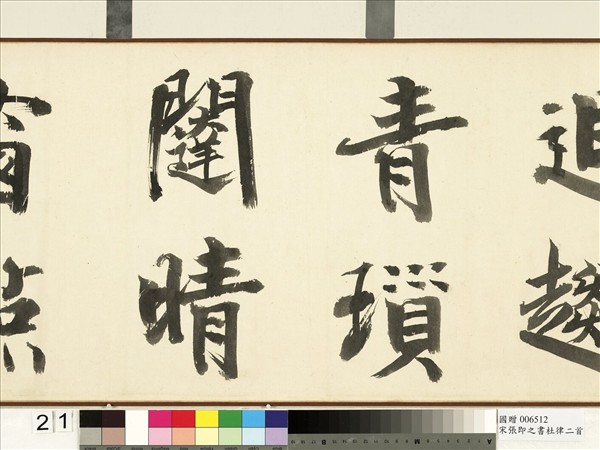 追趨
青瑣
闥晴
窗點
21
國贈 006512
宋張即之書杜律二首